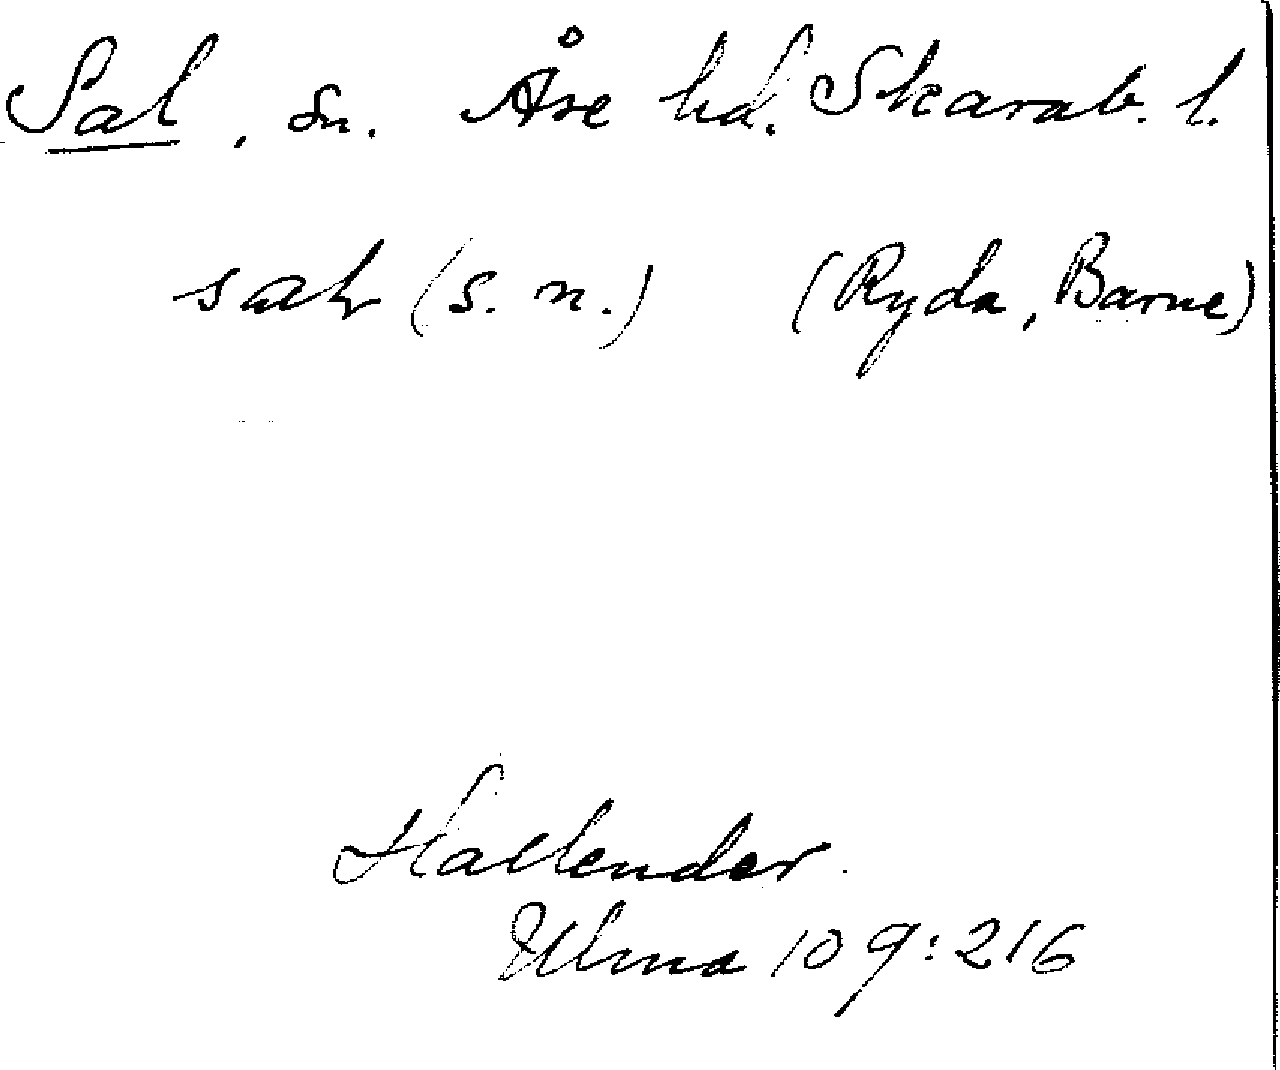 Sal, sn. Åse hd. Skarab. l.
salr (s. n.) (Ryda, Barne)
Hallender.
Ulma 109:216